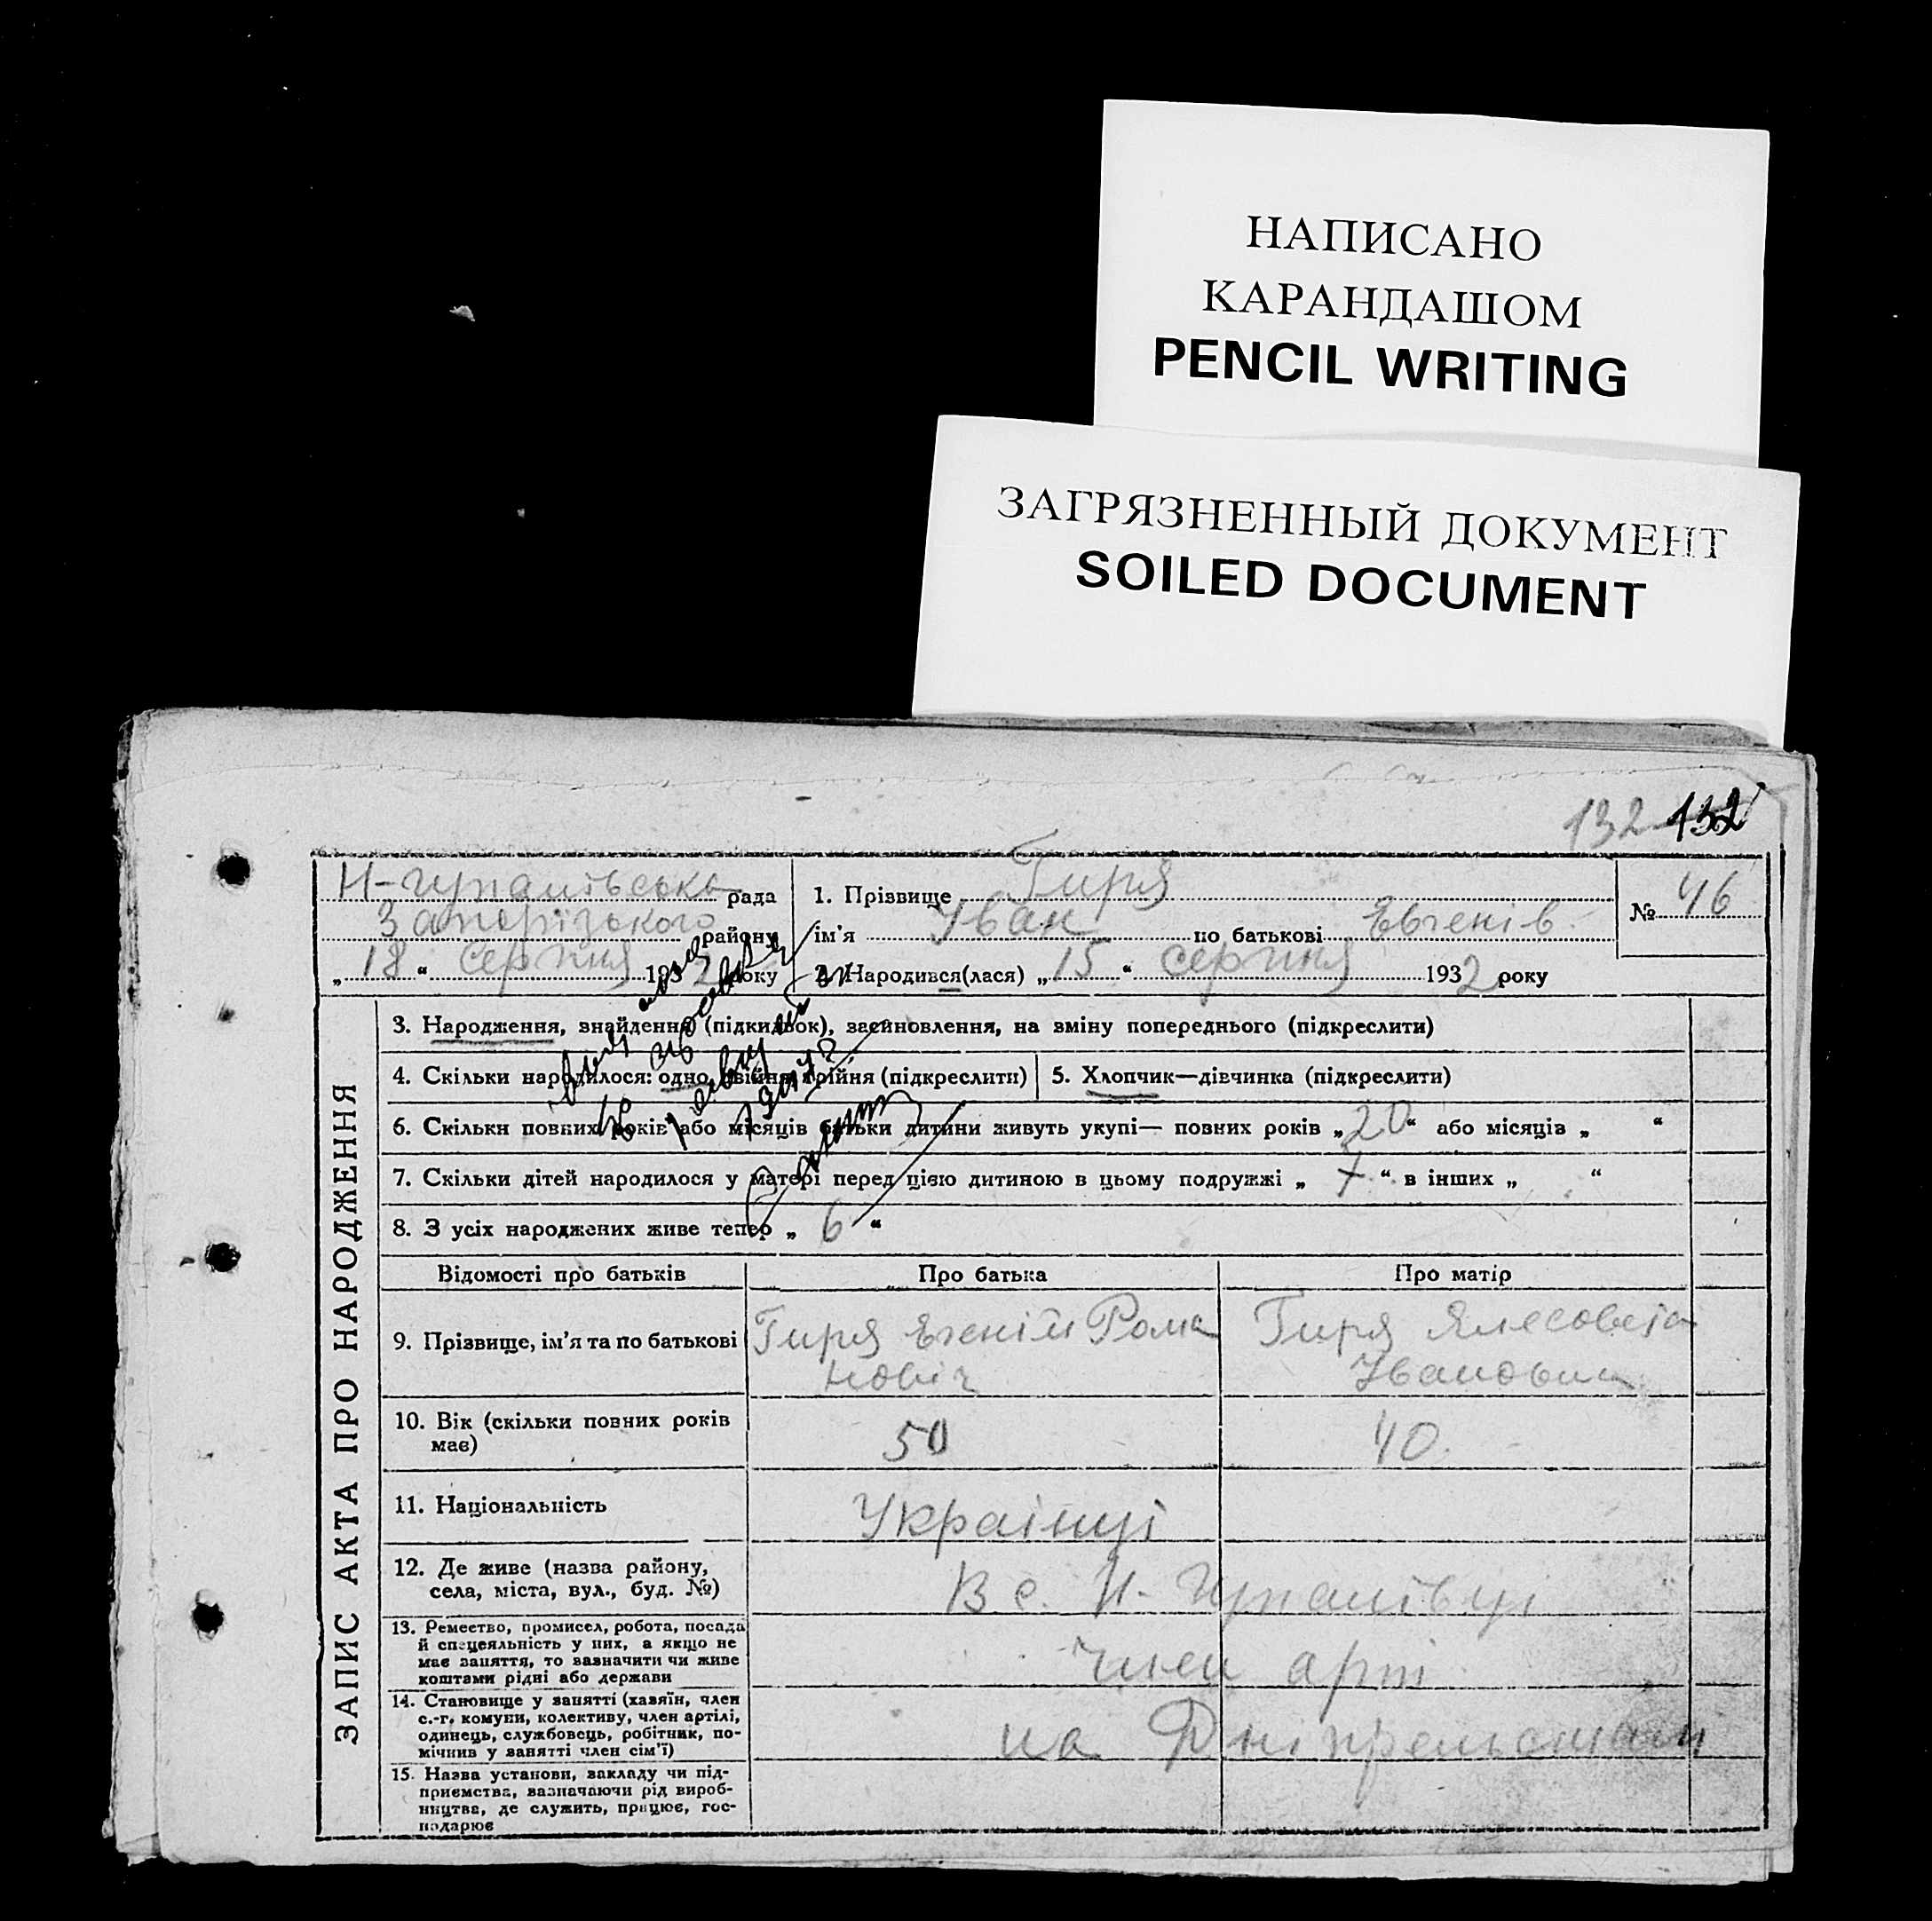 НАПИСАНО
КАРАНДАШОМ
PENCIL WRITING
ЗАГРЯЗНЕННЫЙ ДОКУМЕНТ
SOILED DOCUMENT
132 132
рада
Запорізького
району
„ 18 “ серпня 1932 року
1. Прізвище Гиря
ім'я Іван по батькові Евгенів
2. Народився(лася) „ 15 “ серпня 1932 року
№ 46
ЗАПИС АКТА ПРО НАРОДЖЕННЯ
3. Народження, знайдення (підкидьок), засиновлення, на зміну попереднього (підкреслити)
4. Скільки народилося: одно, двійня, трійня (підкреслити)
5. Хлопчик—дівчинка (підкреслити)
6. Скільки повних років або місяців батьки дитини живуть укупі— повних років „ 20 “ або місяців „ “
7. Скільки дітей народилося у матері перед цією дитиною в цьому подружжі „ 7 “ в інших „ “
8. З усіх народжених живе тепер „ 6 “
Відомості про батьків
Про батька
Про матір
9. Прізвище, ім'я та по батькові
Гиря Евгеній Рома
нович
Гиря
Івановна
10. Вік (скільки повних років
має)
50
40
11. Національність
Українці
12. Де живе (назва району,
села, міста, вул., буд. №)
В с. Н-
13. Ремество, промисел, робота, посада
й спецеяльність у них, а якщо не
має заняття, то зазначити чи живе
коштами рідні або держави
член арті
14. Становище у занятті (хазяїн, член
с.-г. комуни, колективу, член артілі,
одинець, службовець, робітник, по-
мічнив у занятті член сім'ї)
на
15. Назва установи, закладу чи під-
приємства, вазначаючи рід вироб-
ництва, де служить, працює, гос-
подарює